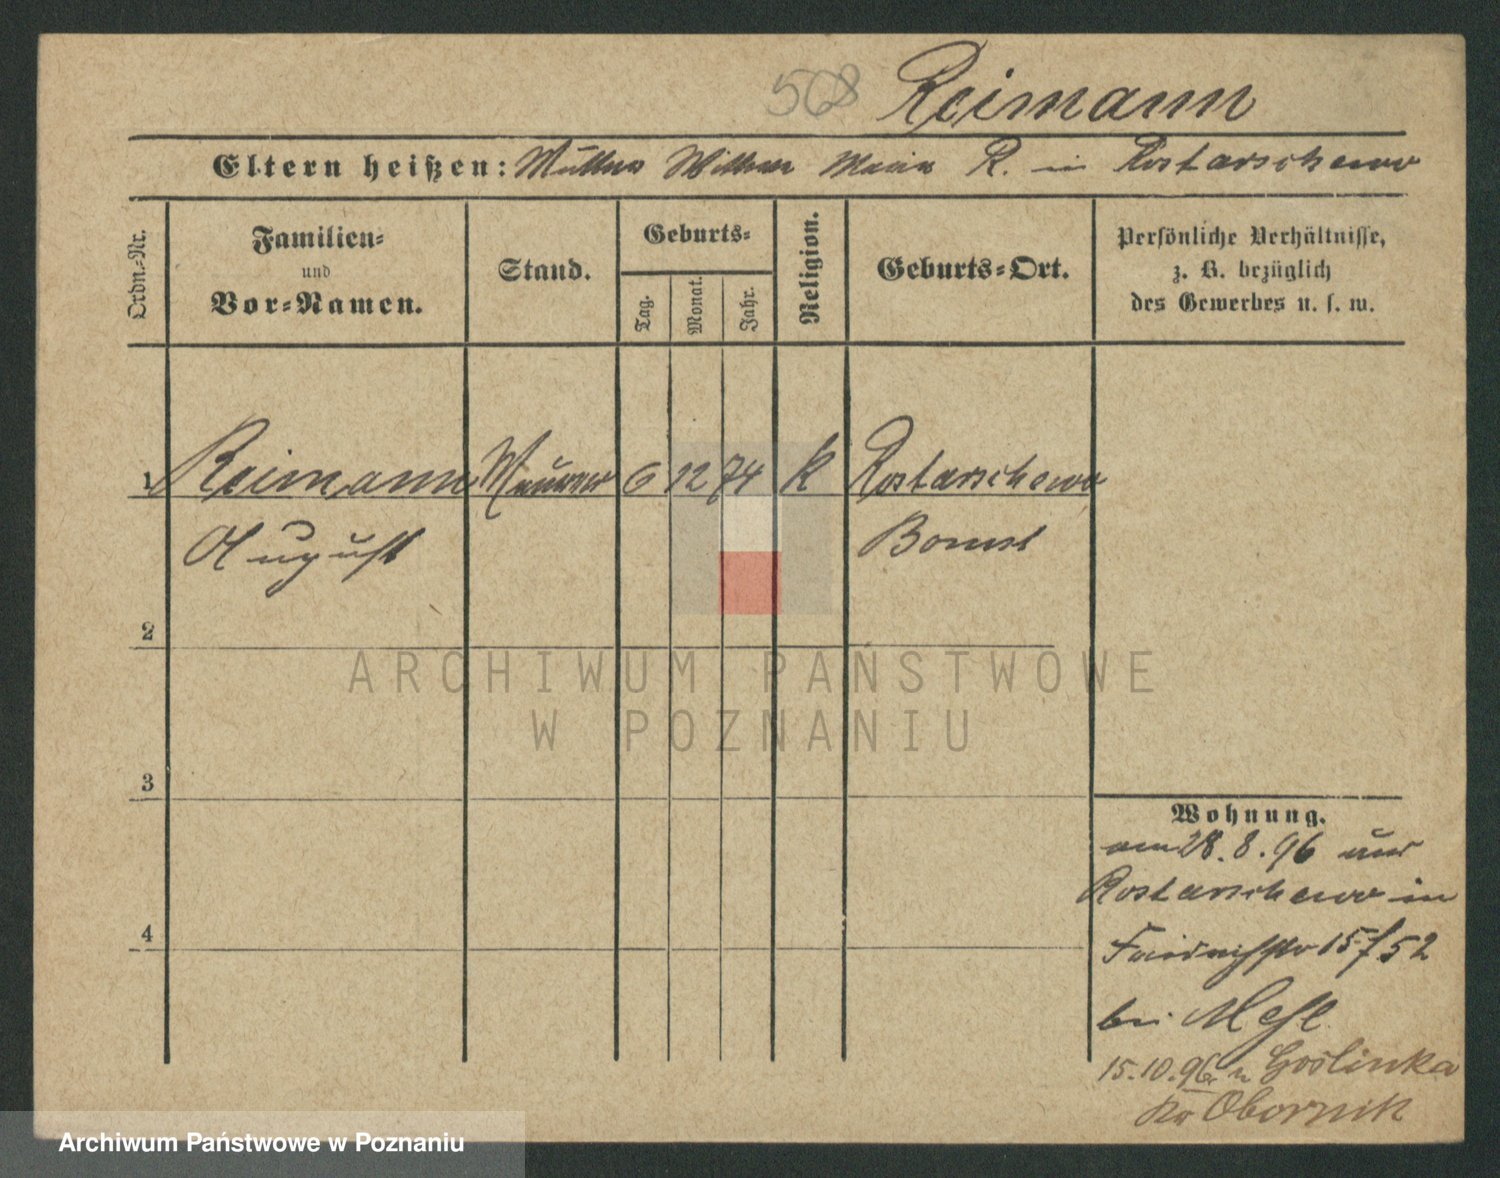 508 Reimann
Eltern heißen: Mutter Wittwe Maria R. in Rostarschewo
Ordn.-Nr.
Familien-
und
Vor-Namen.
Stand.
Geburts-
Tag.
Monat.
Jahr.
Religion.
Geburts-Ort.
Persönliche Verhältnisse,
z. B. bezüglich
des Gewerbes u. s. w.
1 Reimann Maurer 6 12 74 K Rostarschewo
August Bomst
2
ARCHIWUM PAŃSTWOWE
W POZNANIU
3
4
Wohnung.
am 28.8.96 aus
Rostarschewo in
Friedrichstr 15/52
bei
15.10.96 n Goslinka
Kr Obornik
Archiwum Państwowe w Poznaniu